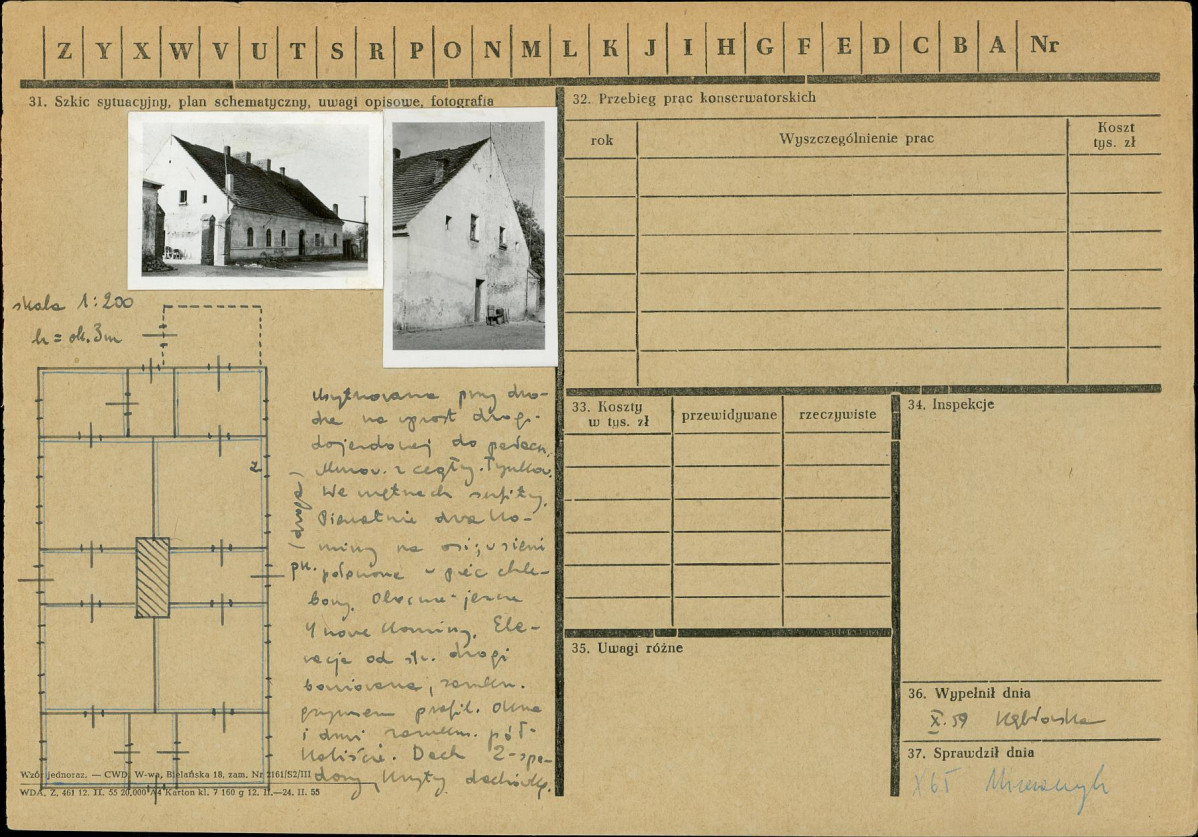 Z Y X W V U T S R P O N M L K J I H G F E D C B A Nr
31. Szkic sytuacyjny, plan schematyczny, uwagi opisowe, fotografia
skala 1:200
h = ok. 3m
(droga)
pn.
Usytuowana przy dro-
dze na wprost drogi
dojazdowej do pałacu.
Murow. z cegły. Tynkow.
We wnętrzach sufity.
Pierwotnie dwa ko-
miny na osi; w sieni
północne w piec chle-
bowy. Obecnie jeszcze
4 nowe kominy. Ele-
wacja od str. drogi
boniowana, zamkn.
gzymsem profil. Okna
i drzwi zamkn. pół-
koliście. Dach 2-spa-
dowy, kryty dachówką.
Wzór jednoraz. — CWD, W-wa, Bielańska 18, zam. Nr 2161/S2/III
WDA. Z. 461 12. II. 55 20,000 A4 Karton kl. 7 160 g 12. II.—24. II. 55
32. Przebieg prac konserwatorskich
rok
Wyszczególnienie prac
Koszt
tys. zł
33. Koszty
w tys. zł
przewidywane
rzeczywiste
34. Inspekcje
35. Uwagi różne
36. Wypełnił dnia
X. 59
37. Sprawdził dnia
X 65